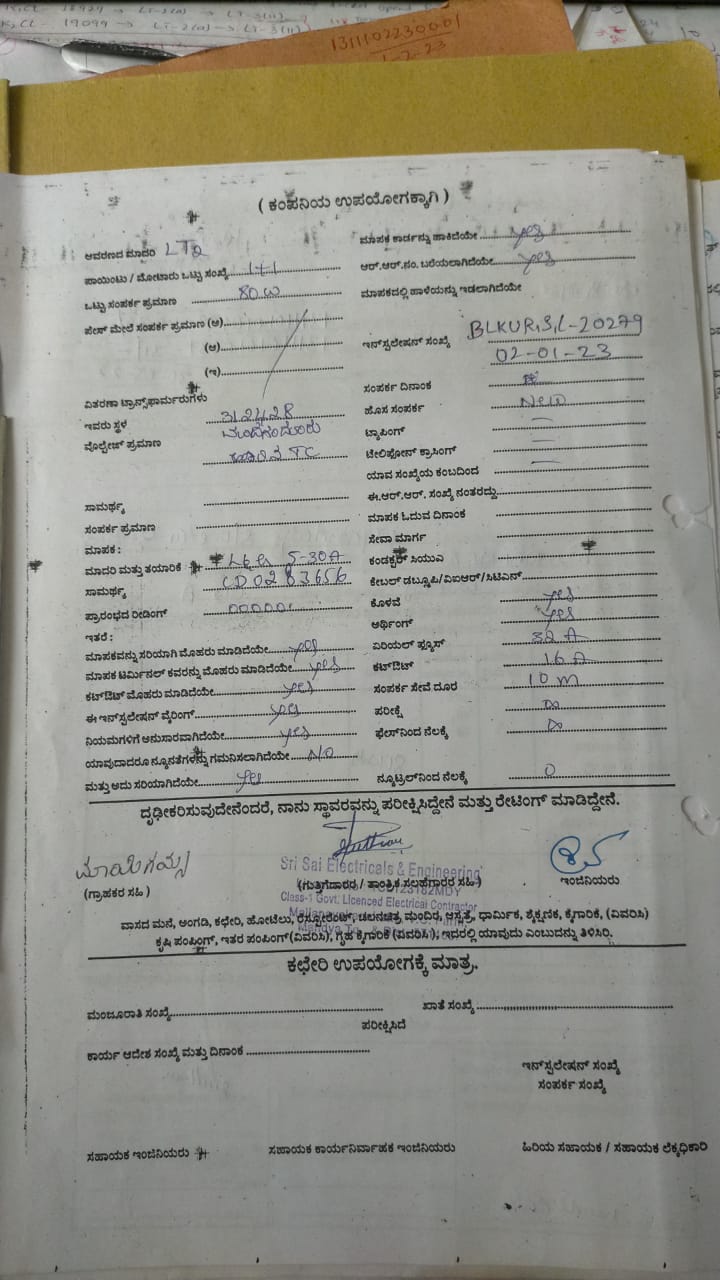 19099 → LT-2(a) → LT-3(ii)
1311102230001
( ಕಂಪನಿಯ ಉಪಯೋಗಕ್ಕಾಗಿ )
ಆವರಣದ ಮಾದರಿ LT2
ಪಾಯಿಂಟು / ಮೋಟಾರು ಒಟ್ಟು ಸಂಖ್ಯೆ 1+1
ಒಟ್ಟು ಸಂಪರ್ಕ ಪ್ರಮಾಣ 80w
ಪೇಸ್ ಮೇಲೆ ಸಂಪರ್ಕ ಪ್ರಮಾಣ (ಅ)
(ಆ)
(ಇ)
ವಿತರಣಾ ಟ್ರಾನ್ಸ್‌ಫಾರ್ಮರುಗಳು
ಇವರು ಸ್ಥಳ 312428
ವೊಲ್ಟೇಜ್ ಪ್ರಮಾಣ
TC
ಸಾಮರ್ಥ್ಯ
ಸಂಪರ್ಕ ಪ್ರಮಾಣ
ಮಾಪಕ :
ಮಾದರಿ ಮತ್ತು ತಯಾರಿಕೆ L&G 5-30A
ಸಾಮರ್ಥ್ಯ CD0283656
ಪ್ರಾರಂಭದ ರೀಡಿಂಗ್ 000001
ಇತರೆ :
ಮಾಪಕವನ್ನು ಸರಿಯಾಗಿ ಮೊಹರು ಮಾಡಿದೆಯೇ yes
ಮಾಪಕ ಟರ್ಮಿನಲ್ ಕವರನ್ನು ಮೊಹರು ಮಾಡಿದೆಯೇ yes
ಕಟ್‌ಔಟ್ ಮೊಹರು ಮಾಡಿದೆಯೇ yes
ಈ ಇನ್‌ಸ್ಟಲೇಷನ್ ವೈರಿಂಗ್ yes
ನಿಯಮಗಳಿಗೆ ಅನುಸಾರವಾಗಿದೆಯೇ yes
ಯಾವುದಾದರೂ ನ್ಯೂನತೆಗಳನ್ನು ಗಮನಿಸಲಾಗಿದೆಯೇ No
ಮತ್ತು ಅದು ಸರಿಯಾಗಿದೆಯೇ yes
ಮಾಪಕ ಕಾರ್ಡನ್ನು ಹಾಕಿದೆಯೇ yes
ಆರ್.ಆರ್.ನಂ. ಬರೆಯಲಾಗಿದೆಯೇ yes
ಮಾಪಕದಲ್ಲಿ ಹಾಳೆಯನ್ನು ಇಡಲಾಗಿದೆಯೇ
ಇನ್‌ಸ್ಟಲೇಷನ್ ಸಂಖ್ಯೆ BLKUR,S,L-20279
02-01-23
ಸಂಪರ್ಕ ದಿನಾಂಕ
ಹೊಸ ಸಂಪರ್ಕ New
ಟ್ಯಾಪಿಂಗ್ —
ಟೇಲಿಫೋನ್ ಕ್ರಾಸಿಂಗ್ —
ಯಾವ ಸಂಖ್ಯೆಯ ಕಂಬದಿಂದ —
ಈ.ಆರ್.ಆರ್. ಸಂಖ್ಯೆ ನಂತರದ್ದು
ಮಾಪಕ ಓದುವ ದಿನಾಂಕ
ಸೇವಾ ಮಾರ್ಗ
ಕಂಡಕ್ಟರ್ ಸಿಯುವಿ
ಕೇಬಲ್ ಡಬ್ಲೂಪಿ/ವಿಐಆರ್/ಸಿಟಿಎನ್
ಕೊಳವೆ yes
ಅರ್ಥಿಂಗ್ yes
ಏರಿಯಲ್ ಫ್ಯೂಸ್ 32 A
ಕಟ್‌ಔಟ್ 16 A
ಸಂಪರ್ಕ ಸೇವೆ ದೂರ 10 m
ಪರೀಕ್ಷೆ ∞
ಫೇಸ್‌ನಿಂದ ನೆಲಕ್ಕೆ ∞
ನ್ಯೂಟ್ರಲ್‌ನಿಂದ ನೆಲಕ್ಕೆ 0
ದೃಢೀಕರಿಸುವುದೇನೆಂದರೆ, ನಾನು ಸ್ಥಾವರವನ್ನು ಪರೀಕ್ಷಿಸಿದ್ದೇನೆ ಮತ್ತು ರೇಟಿಂಗ್ ಮಾಡಿದ್ದೇನೆ.
Sri Sai Electricals & Engineering
(ಗ್ರಾಹಕರ ಸಹಿ )
(ಗುತ್ತಿಗೆದಾರರ / ತಾಂತ್ರಿಕ ಸಲಹೆಗಾರರ ಸಹಿ)
ಇಂಜಿನಿಯರು
Class-1 Govt. Licenced Electrical Contractor
ವಾಸದ ಮನೆ, ಅಂಗಡಿ, ಕಛೇರಿ, ಹೋಟೆಲು, ರೆಸ್ಟೋರೆಂಟ್, ಚಲನಚಿತ್ರ ಮಂದಿರ, ಆಸ್ಪತ್ರೆ, ಧಾರ್ಮಿಕ, ಶೈಕ್ಷಣಿಕ, ಕೈಗಾರಿಕೆ, (ವಿವರಿಸಿ)
ಕೃಷಿ ಪಂಪಿಂಗ್, ಇತರ ಪಂಪಿಂಗ್ (ವಿವರಿಸಿ), ಗೃಹ ಕೈಗಾರಿಕೆ (ವಿವರಿಸಿ), ಇದರಲ್ಲಿ ಯಾವುದು ಎಂಬುದನ್ನು ತಿಳಿಸಿರಿ.
ಕಛೇರಿ ಉಪಯೋಗಕ್ಕೆ ಮಾತ್ರ.
ಮಂಜೂರಾತಿ ಸಂಖ್ಯೆ ಖಾತೆ ಸಂಖ್ಯೆ
ಪರೀಕ್ಷಿಸಿದೆ
ಕಾರ್ಯ ಆದೇಶ ಸಂಖ್ಯೆ ಮತ್ತು ದಿನಾಂಕ
ಇನ್‌ಸ್ಟಲೇಷನ್ ಸಂಖ್ಯೆ
ಸಂಪರ್ಕ ಸಂಖ್ಯೆ
ಸಹಾಯಕ ಇಂಜಿನಿಯರು ಸಹಾಯಕ ಕಾರ್ಯನಿರ್ವಾಹಕ ಇಂಜಿನಿಯರು ಹಿರಿಯ ಸಹಾಯಕ / ಸಹಾಯಕ ಲೆಕ್ಕಧಿಕಾರಿ